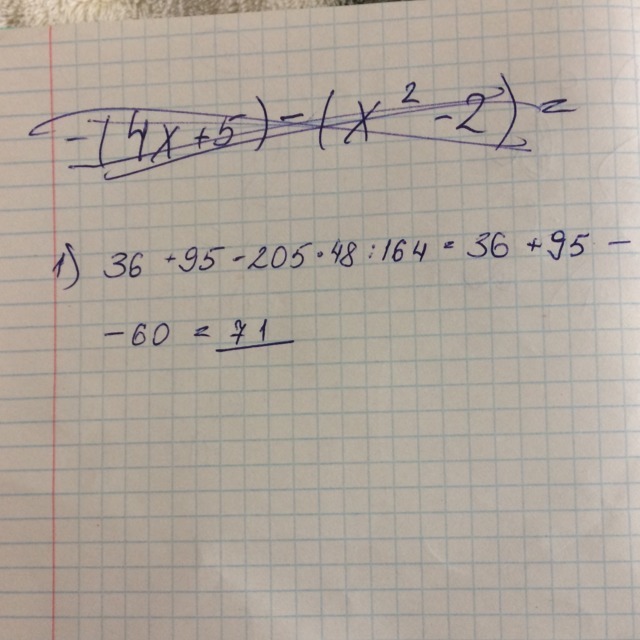 -(4x+5)-(x² -2) =
1) 36 +95 -205·48:164 = 36 +95 -
-60 = 71